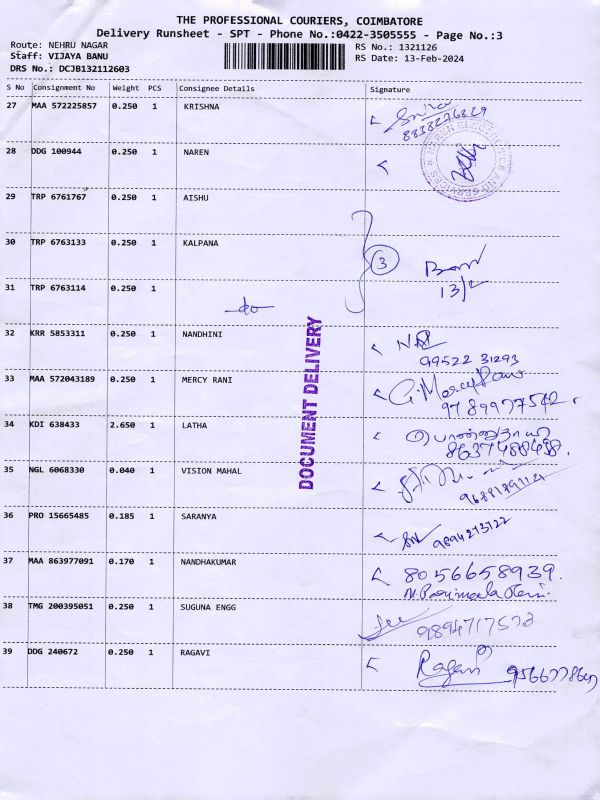 THE PROFESSIONAL COURIERS, COIMBATORE
Delivery Runsheet - SPT - Phone No.:0422-3505555 - Page No.:3
Route: NEHRU NAGAR RS No.: 1321126
Staff: VIJAYA BANU RS Date: 13-Feb-2024
DRS No.: DCJB132112603
S No Consignment No Weight PCS Consignee Details Signature
27 MAA 572225857 0.250 1 KRISHNA
8838276829
28 DDG 100944 0.250 1 NAREN
29 TRP 6761767 0.250 1 AISHU
30 TRP 6763133 0.250 1 KALPANA
3
31 TRP 6763114 0.250 1 -do- 13/2
32 KRR 5853311 0.250 1 NANDHINI
99522 31293
33 MAA 572043189 0.250 1 MERCY RANI G. Mercy Rani
9789977542
34 KDI 638433 2.650 1 LATHA
8637488458
35 NGL 6068330 0.040 1 VISION MAHAL
36 PRO 15665485 0.185 1 SARANYA
9894273122
37 MAA 863977091 0.170 1 NANDHAKUMAR 8056658939.
38 TMG 200395051 0.250 1 SUGUNA ENGG
39 DDG 240672 0.250 1 RAGAVI Ragavi
DOCUMENT DELIVERY